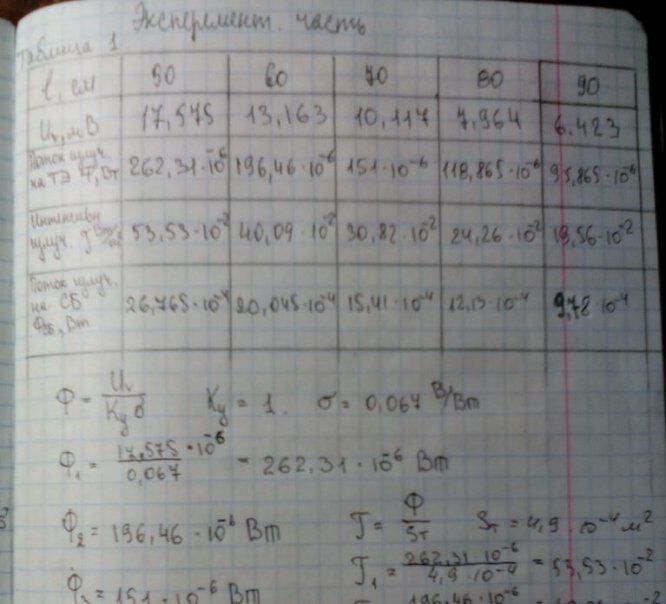 Эксперемент. часть
Таблица 1
l, см 50 60 70 80 90
U, мВ 17,575 13,163 10,117 7,964 6,423
Поток излуч.
на ТЭ Ф, Вт 262,31·10⁻⁶ 196,46·10⁻⁶ 151·10⁻⁶ 118,865·10⁻⁶ 95,865·10⁻⁶
излуч. 53,53·10⁻² 40,09·10⁻² 30,82·10⁻² 24,26·10⁻² 19,56·10⁻²
Поток излуч.
на СБ
Вт 26,765·10⁻⁴ 20,045·10⁻⁴ 15,41·10⁻⁴ 12,13·10⁻⁴ 9,78·10⁻⁴
Ф = U/Kуσ Kу = 1. σ = 0,067 В/Вт
Ф₁ = 17,575·10⁻⁶/0,067 = 262,31·10⁻⁶ Вт
Ф₂ = 196,46·10⁻⁶ Вт J = Ф/Sт Sт = 4,9·10⁻⁴ м²
J₁ = 262,31·10⁻⁶/4,9·10⁻⁴ = 53,53·10⁻²
Ф₃ = 151·10⁻⁶ Вт 196,46·10⁻⁶